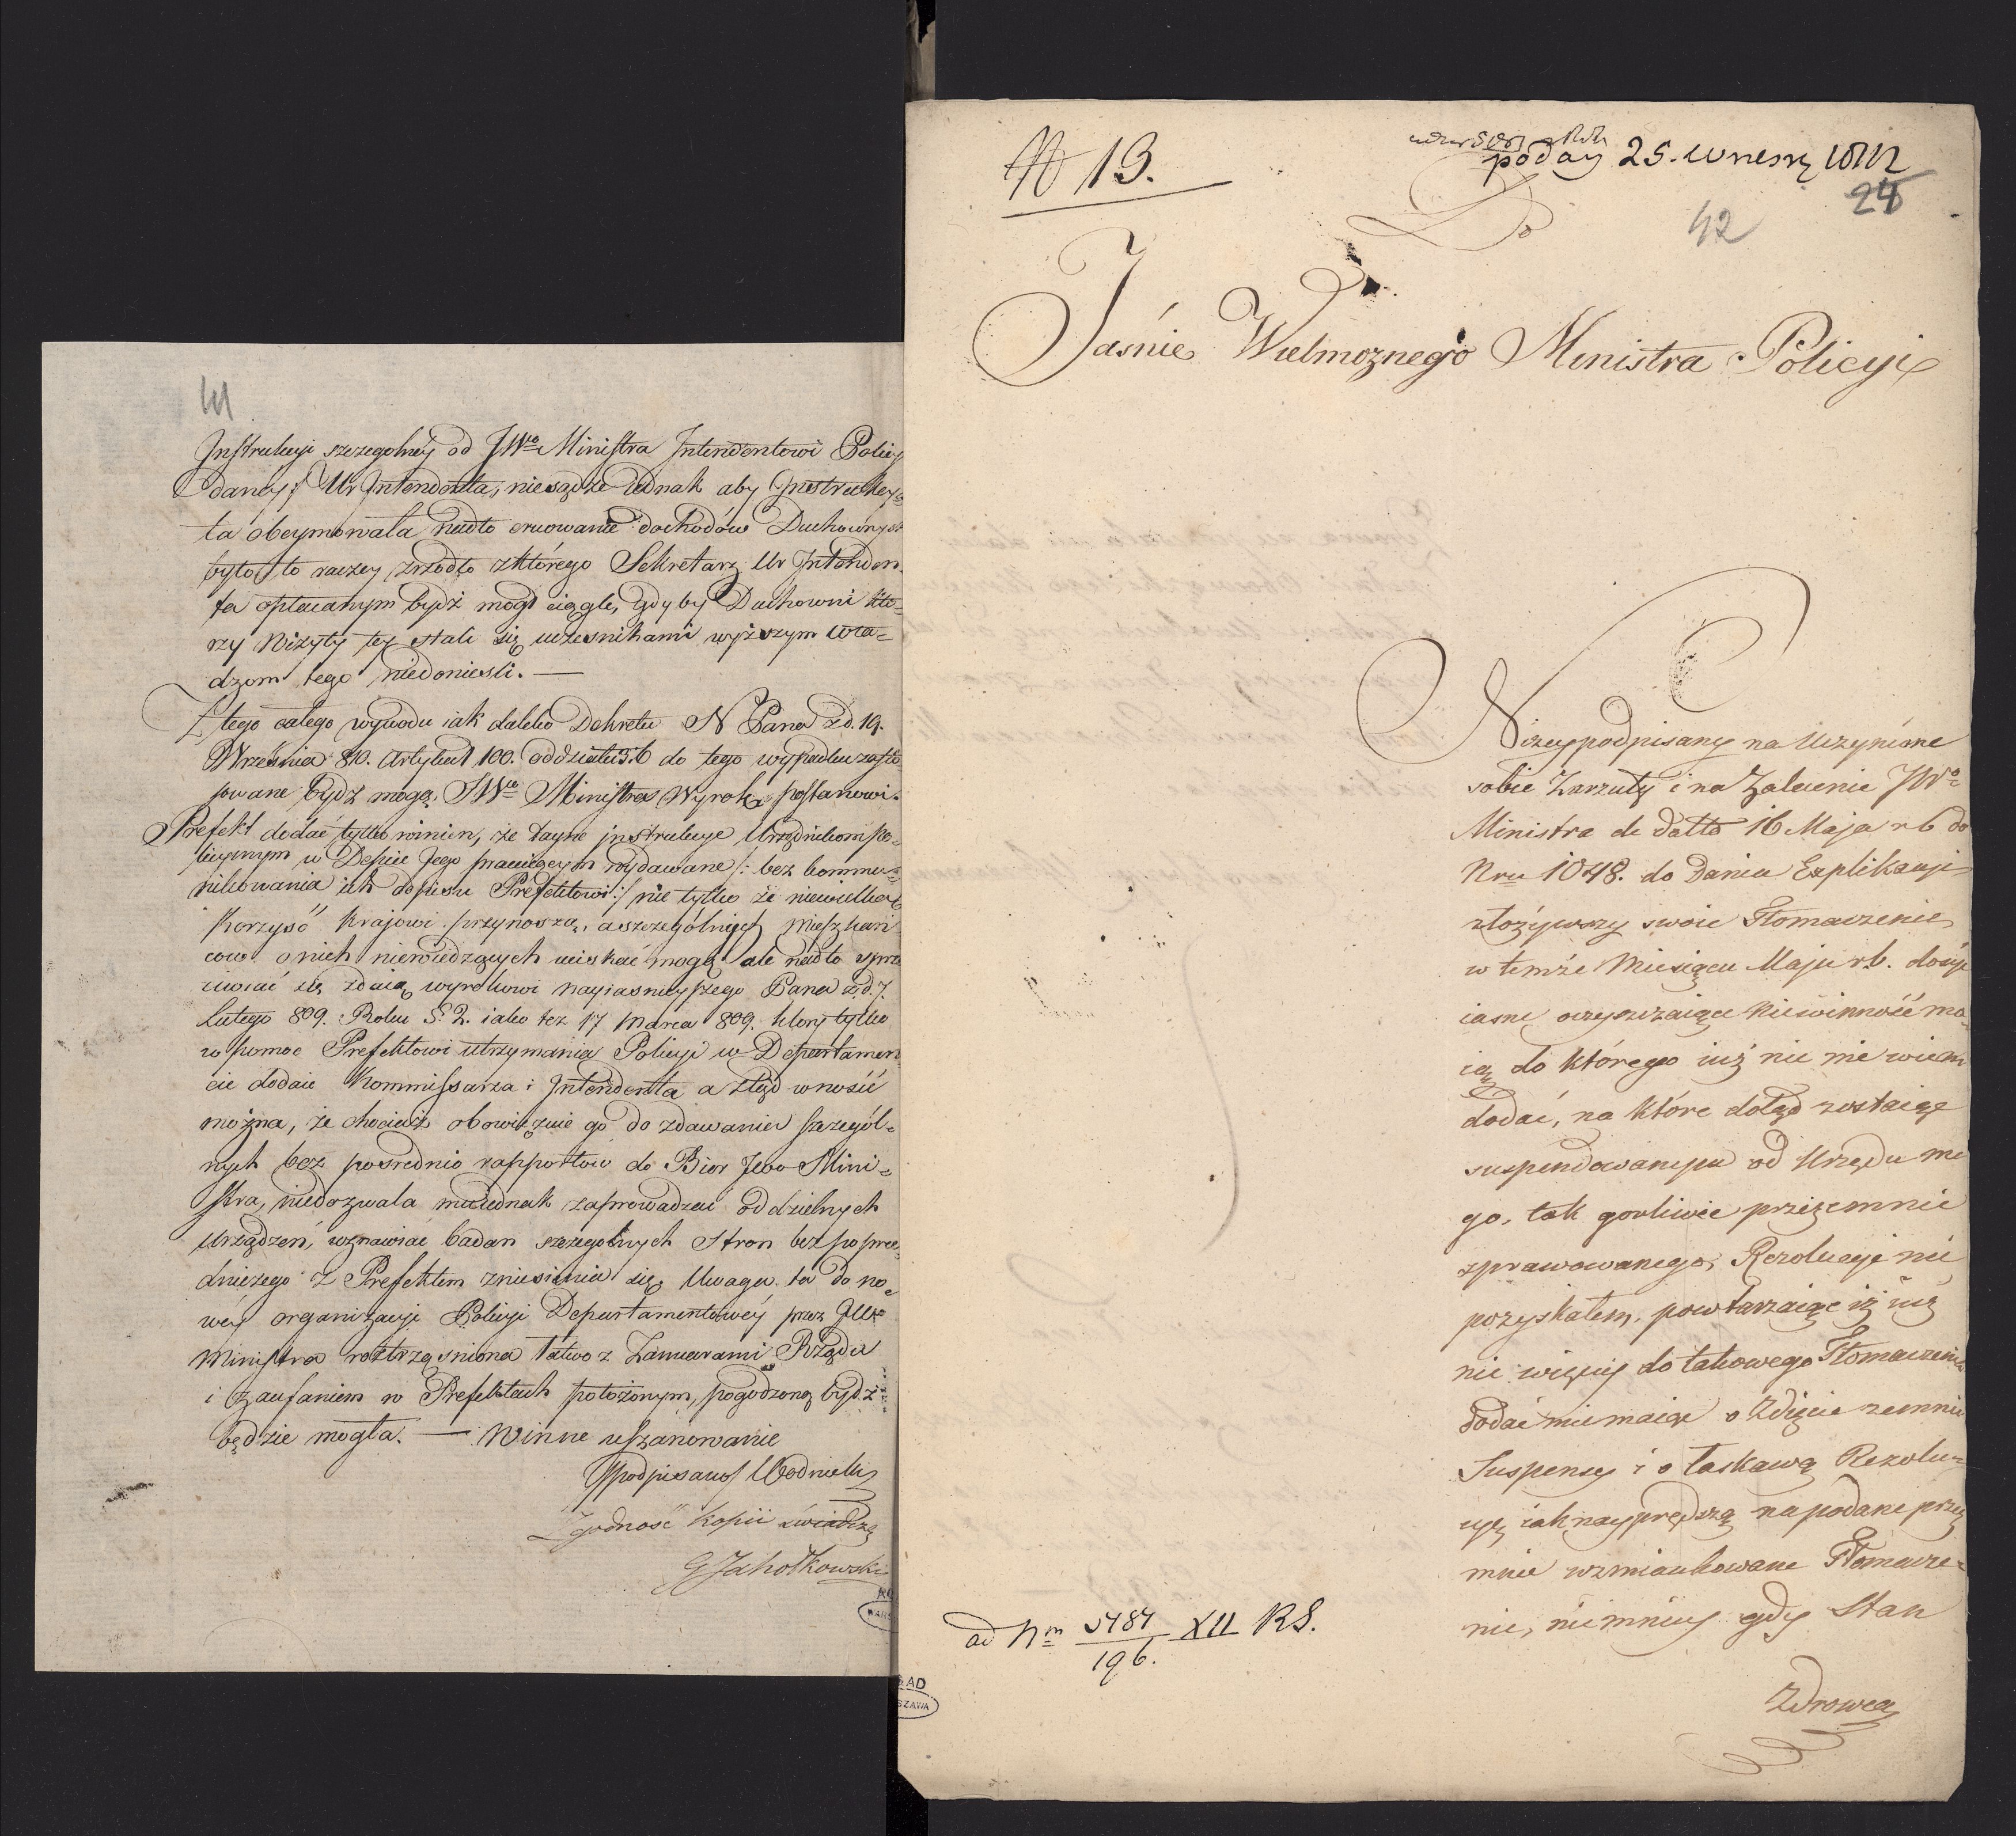 41
Instrukcyi szczegolney od JWo Ministra Intendentowi Policyi
daney /: Ur Intendenta, niesądzę iednak aby Instrukcya
ta obeymowała nadto eruowanie dochodów Duchownych
było to raczey zrzodło zktórego Sekretarz Ur Intenden-
ta opłacanym bydź mógł ciągle, gdyby Duchowni któ-
rzy Wizyty tey stali się uczesnikami wyższym Wła-
dzom tego niedoniesli. —
Z tego całego wywodu iak daleko Dekreta N Pana z d. 19.
Września 810. Artykuł 100. oddziału 3. 6 do tego wypadku zasto-
sowane bydź mogą, JWo Ministra Wyrok postanowi.
Prefekt dodać tylko winien, że tayne instrukcye Urzędnikom po-
licyinym w Depcie Jego pracuiącym wydawane /: bez kommu-
nikowania ich dopisu Prefektowi :/ nie tylko że niewielką
Korzyść Krajowi przynoszą, a szczególnych mieszkań-
cow o nich niewiedzących uciskać mogą ale nadto sprze-
ciwiać się zdaią wyrokowi Nayiasnieyszego Pana z d. 7.
Lutego 809. Roku §. 2. iako też 17 Marca 809. który tylko
w pomoc Prefektowi utrzymania Policyi w Departamen-
cie dodaie Kommissarza i Intendenta a ztąd wnosić
można, że chociaż obowiązuie go do zdawania szczegól-
nych bez pośrednio rapportów do Biór JWo Mini-
stra, niedozwala mu iednak zaprowadzać oddzielnych
urządzeń, wznawiać badan szczegolnych stron bez poprze-
dniczego z Prefektem zniesienia się. Uwaga ta do no-
wéy organizacyi Policyi Departamentowéy przez JWo
Ministra roztrząsniona łatwo z Zamiarami Rządu
i zaufaniem w Prefektach położonym, pogodzoną bydź
będzie mogła. — Winne uszanowanie
/podpisano/ Wodnicki
Zgodność Kopii świadczę
G Jahołkowski
No 13.
poday 25. Wrzesn 1812
24
42
Do
Jaśnie Wielmoznego Ministra Policyi
Niżey podpisany na Uczynione
sobie Zarzuty i na Zalecenie JWo
Ministra de datto 16 Maja r b do
Nru 1048. do Dania Explikacyi
złożywszy swoie Tłomaczenie
w temże Miesiącu Maju r. b. dosyć
iasne oczyszczaiące Niewinność mo-
ią do którego iuż nic nie wiem
dodać, na które dotąd zostaiąc
suspendowanym od Urzędu me
go, tak gorliwie przezemnie
sprawowanego, Rezolucyi nie
pozyskałem, powtarzaiąc iż iuż
nic więcey do takowego Tłomaczenia
dodać niemaiąc o Zdięcie zemnie
Suspensy i o łaskawą Rezolu-
cyę iaknayprędszą na podane przez
mnie wzmiankowane Tłomacze-
nie, niemniey gdy Stan
Zdrowia
ad Nm 5787/196. XII RS.